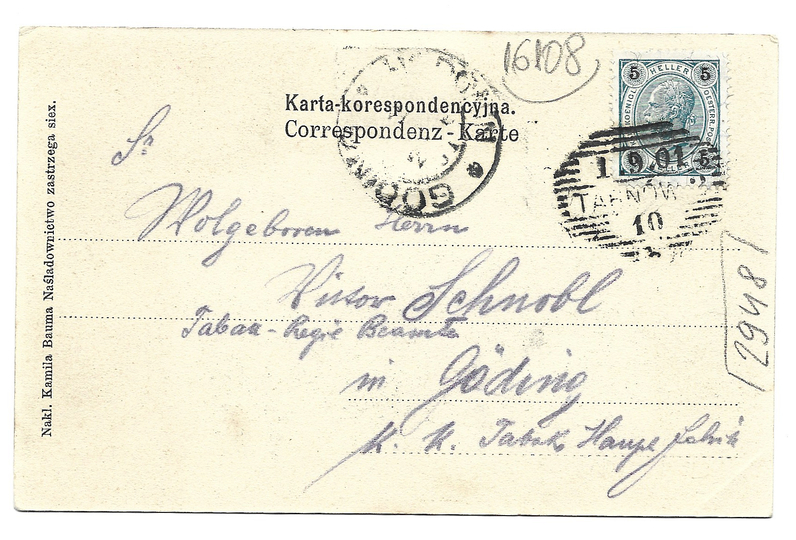 16108
5 HELLER 5
Karta-korespondencyjna.
Correspondenz-Karte
1 9.01
TARNÓW
10
GÖDING
Sr
Wolgeboren Herrn
Victor Schnobl
Tabak-Regie Beamte
in Göding
K. K. Tabak Haupt Fabrik
29481
Nakl. Kamila Bauma Naśladownictwo zastrzega siex.